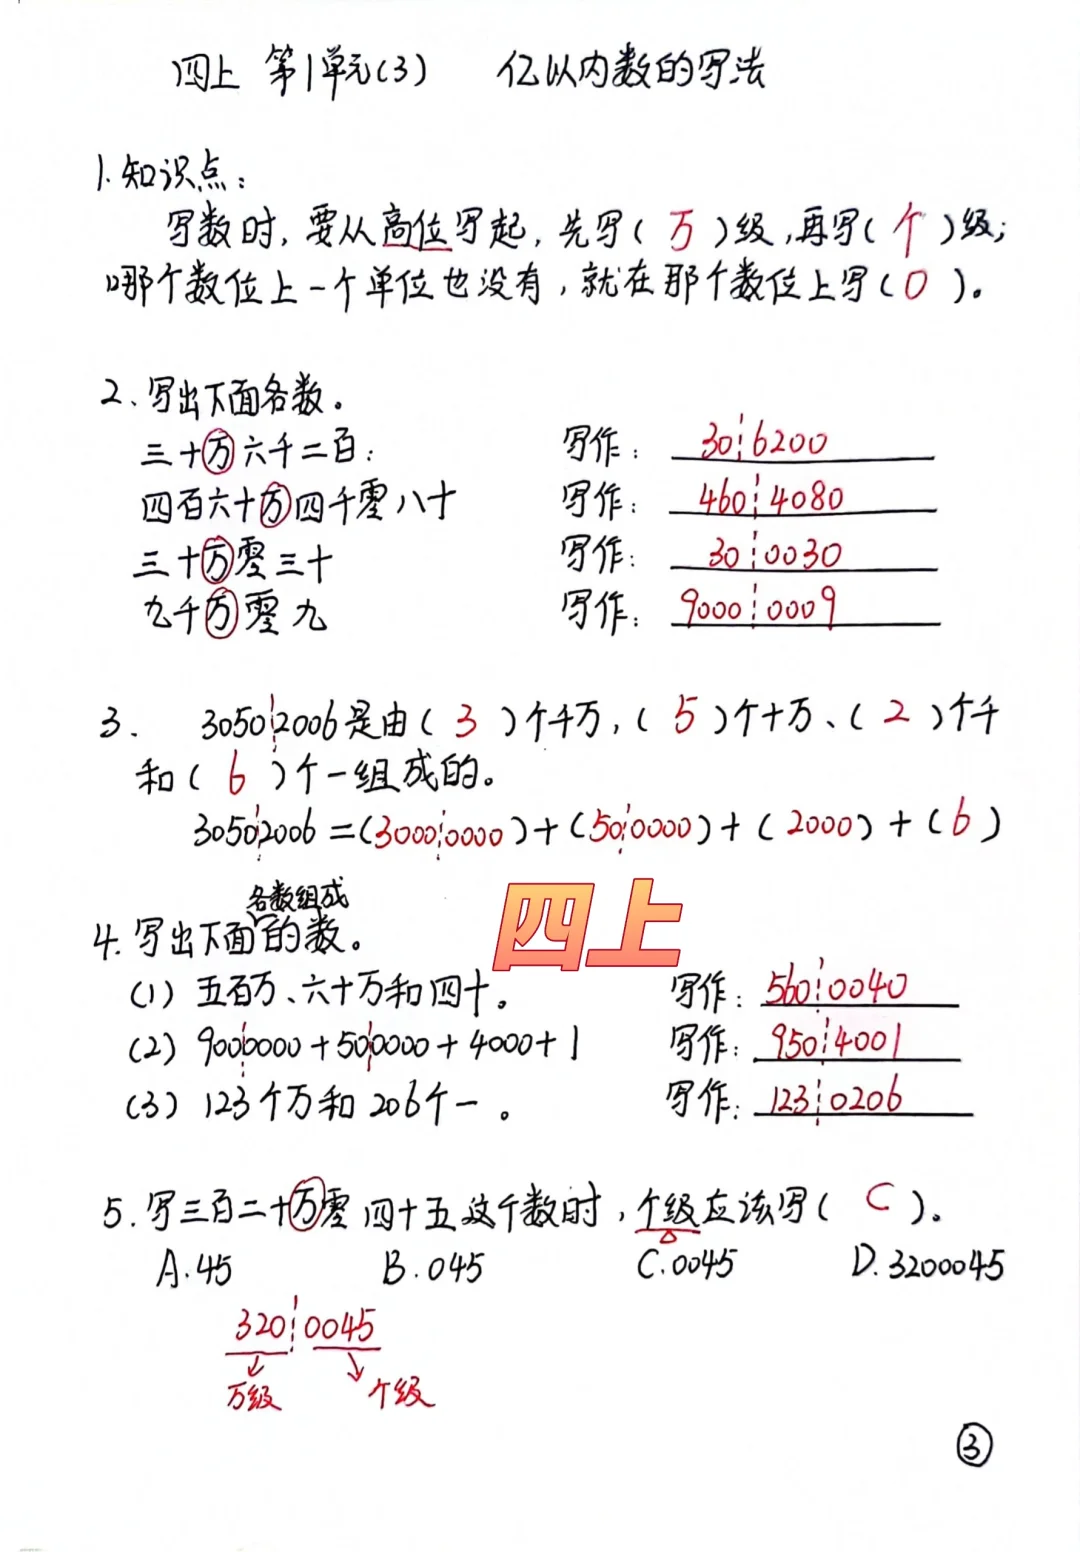 四上 第1单元(3) 亿以内数的写法
1.知识点:
写数时,要从高位写起,先写(万)级,再写(个)级;
哪个数位上一个单位也没有,就在那个数位上写(0)。
2、写出下面各数。
三十万六千二百: 写作: 30┆6200
四百六十万四千零八十 写作: 460┆4080
三十万零三十 写作: 30┆0030
九千万零九 写作: 9000┆0009
3、 3050┆2006是由(3)个千万,(5)个十万、(2)个千
和(6)个一组成的。
3050┆2006=(3000┆0000)+(50┆0000)+(2000)+(6)
各数组成
4.写出下面的数。
四上
(1)五百万、六十万和四十。 写作: 560┆0040
(2)900┆0000+50┆0000+4000+1 写作: 950┆4001
(3)123个万和206个一。 写作: 123┆0206
5.写三百二十万零四十五这个数时,个级应该写(C)。
A.45 B.045 C.0045 D.3200045
320┆0045
万级 个级
③